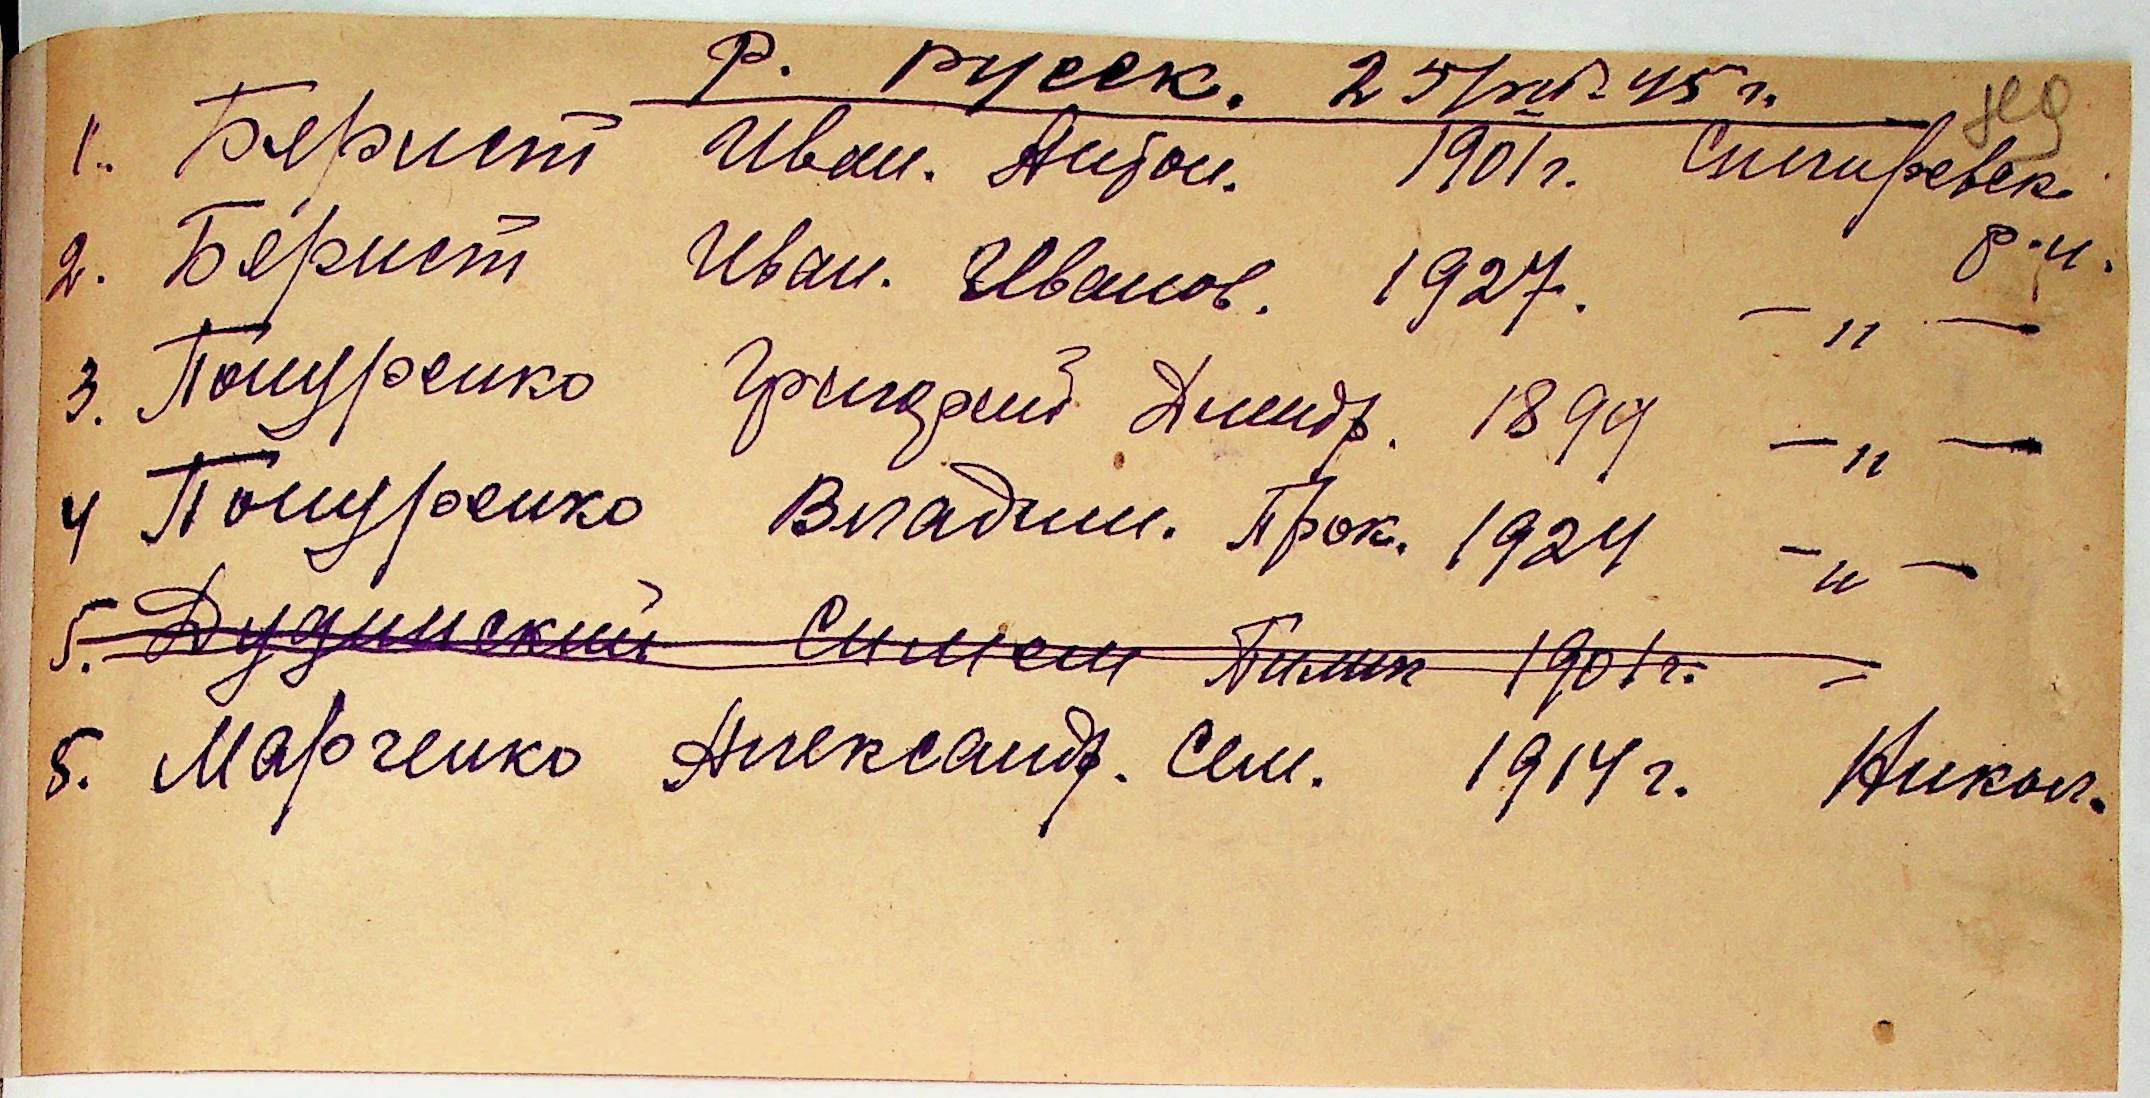 Р. русск. 25/XII-45 г.
1. Бярист Иван. Антон. 1901 г. Снигиревск.
р-н.
2. Бярист Иван. Иванов. 1927. — „ —
3. Пошуренко Григорий Дмитр. 1899 — „ —
4 Пошуренко Владим. Прок. 1924 — „ —
5. Дудинский Симеон 1901 г. —
5. Марченко Александр. Сем. 1914 г. Никол.